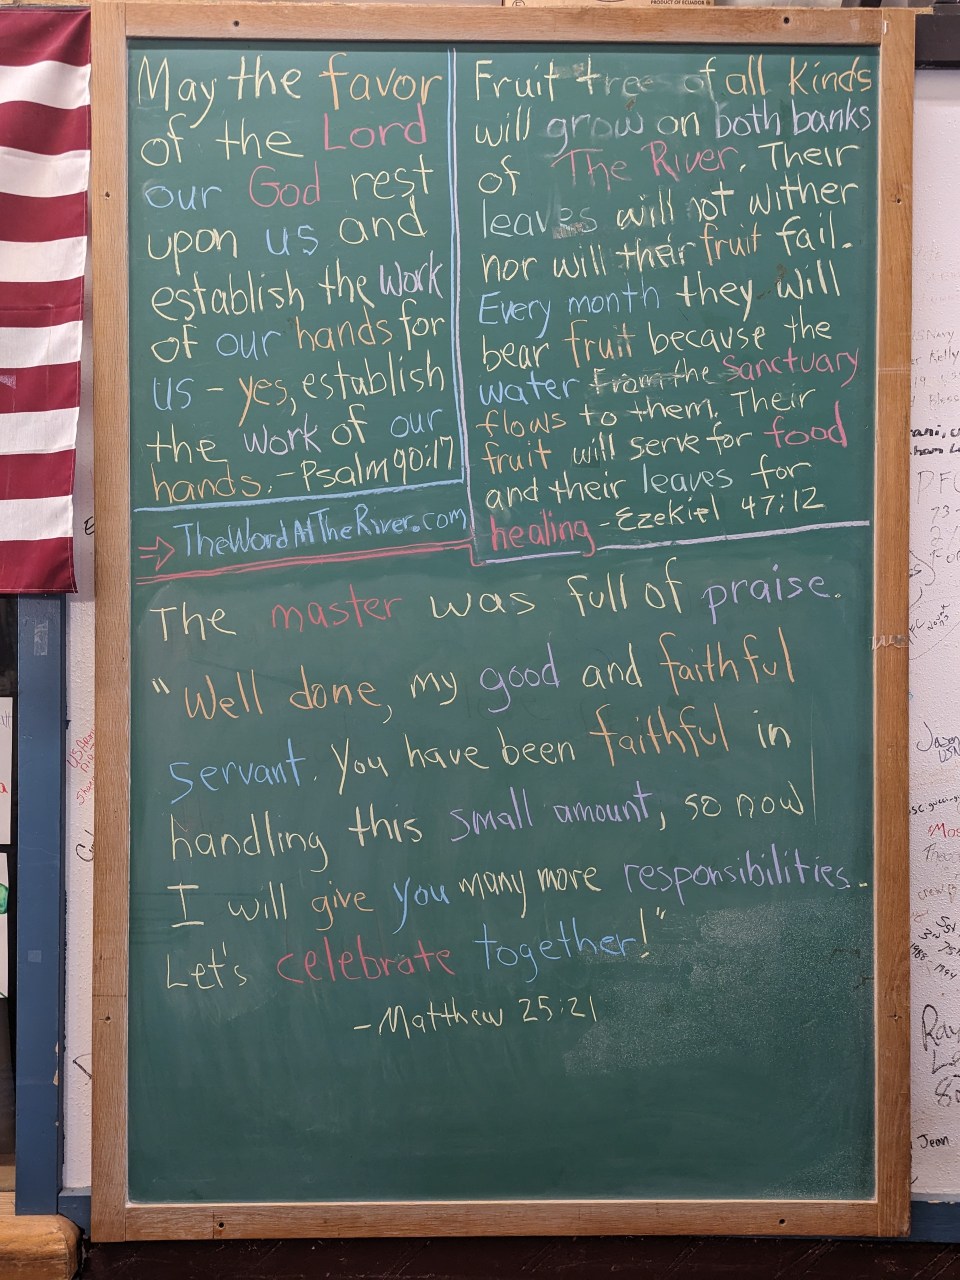 PRODUCT OF ECUADOR
May the favor
of the Lord
our God rest
upon us and
establish the work
of our hands for
us - yes, establish
the work of our
hands. - Psalm 90:17
→ TheWordAtTheRiver.com
Fruit tree of all kinds
will grow on both banks
of The River. Their
leaves will not wither
nor will their fruit fail.
Every month they will
bear fruit because the
water from the Sanctuary
flows to them. Their
fruit will serve for food
and their leaves for
healing - Ezekiel 47:12
The master was full of praise.
"Well done, my good and faithful
servant. You have been faithful in
handling this small amount, so now
I will give you many more responsibilities.
Let's celebrate together!"
- Matthew 25:21
Jean